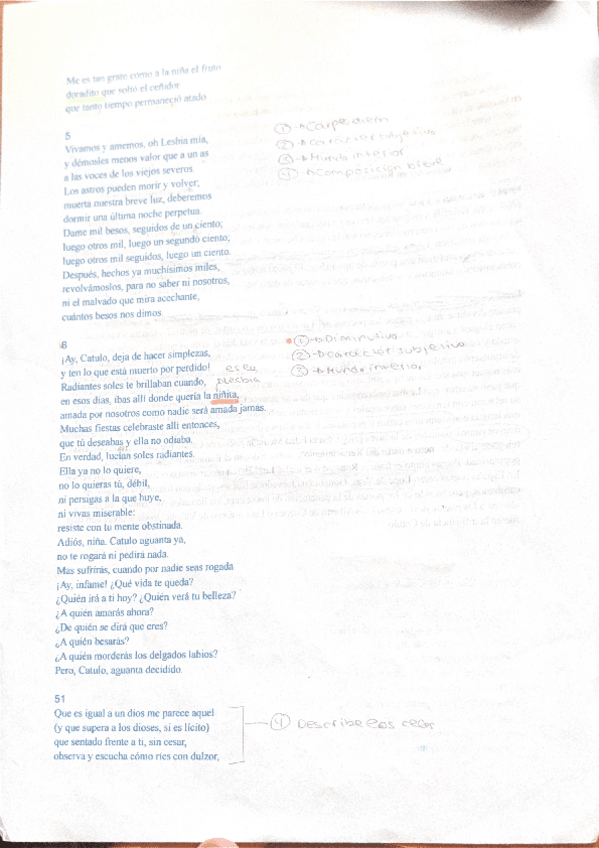 Me es tan grato como a la niña el fruto
doradito que soltó el ceñidor
que tanto tiempo permaneció atado
5
Vivamos y amemos, oh Lesbia mía,
y démosles menos valor que a un as
a las voces de los viejos severos
Los astros pueden morir y volver;
muerta nuestra breve luz, deberemos
dormir una última noche perpetua.
Dame mil besos, seguidos de un ciento;
luego otros mil, luego un segundo ciento;
luego otros mil seguidos, luego un ciento.
Después, hechos ya muchísimos miles,
revolvámoslos, para no saber ni nosotros,
ni el malvado que mira acechante,
cuántos besos nos dimos
① → Carpe diem
② → Carácter subjetivo
③ → Mundo interior
④ → Composición breve
8
¡Ay, Catulo, deja de hacer simplezas,
y ten lo que está muerto por perdido!
Radiantes soles te brillaban cuando,
en esos días, ibas allí donde quería la niñita,
amada por nosotros como nadie será amada jamas.
Muchas fiestas celebraste allí entonces,
que tú deseabas y ella no odiaba.
En verdad, lucían soles radiantes.
Ella ya no lo quiere,
no lo quieras tú, débil,
ni persigas a la que huye,
ni vivas miserable:
resiste con tu mente obstinada.
Adiós, niña. Catulo aguanta ya,
no te rogará ni pedirá nada.
Mas sufrirás, cuando por nadie seas rogada
¡Ay, infame! ¿Qué vida te queda?
¿Quién irá a ti hoy? ¿Quién verá tu belleza?
¿A quién amarás ahora?
¿De quién se dirá que eres?
¿A quién besarás?
¿A quién morderás los delgados labios?
Pero, Catulo, aguanta decidido.
① → Diminutivo
② → Carácter subjetivo
③ → Mundo interior
51
Que es igual a un dios me parece aquel
(y que supera a los dioses, si es lícito)
que sentado frente a ti, sin cesar,
observa y escucha cómo ríes con dulzor,
④ Describe los celos